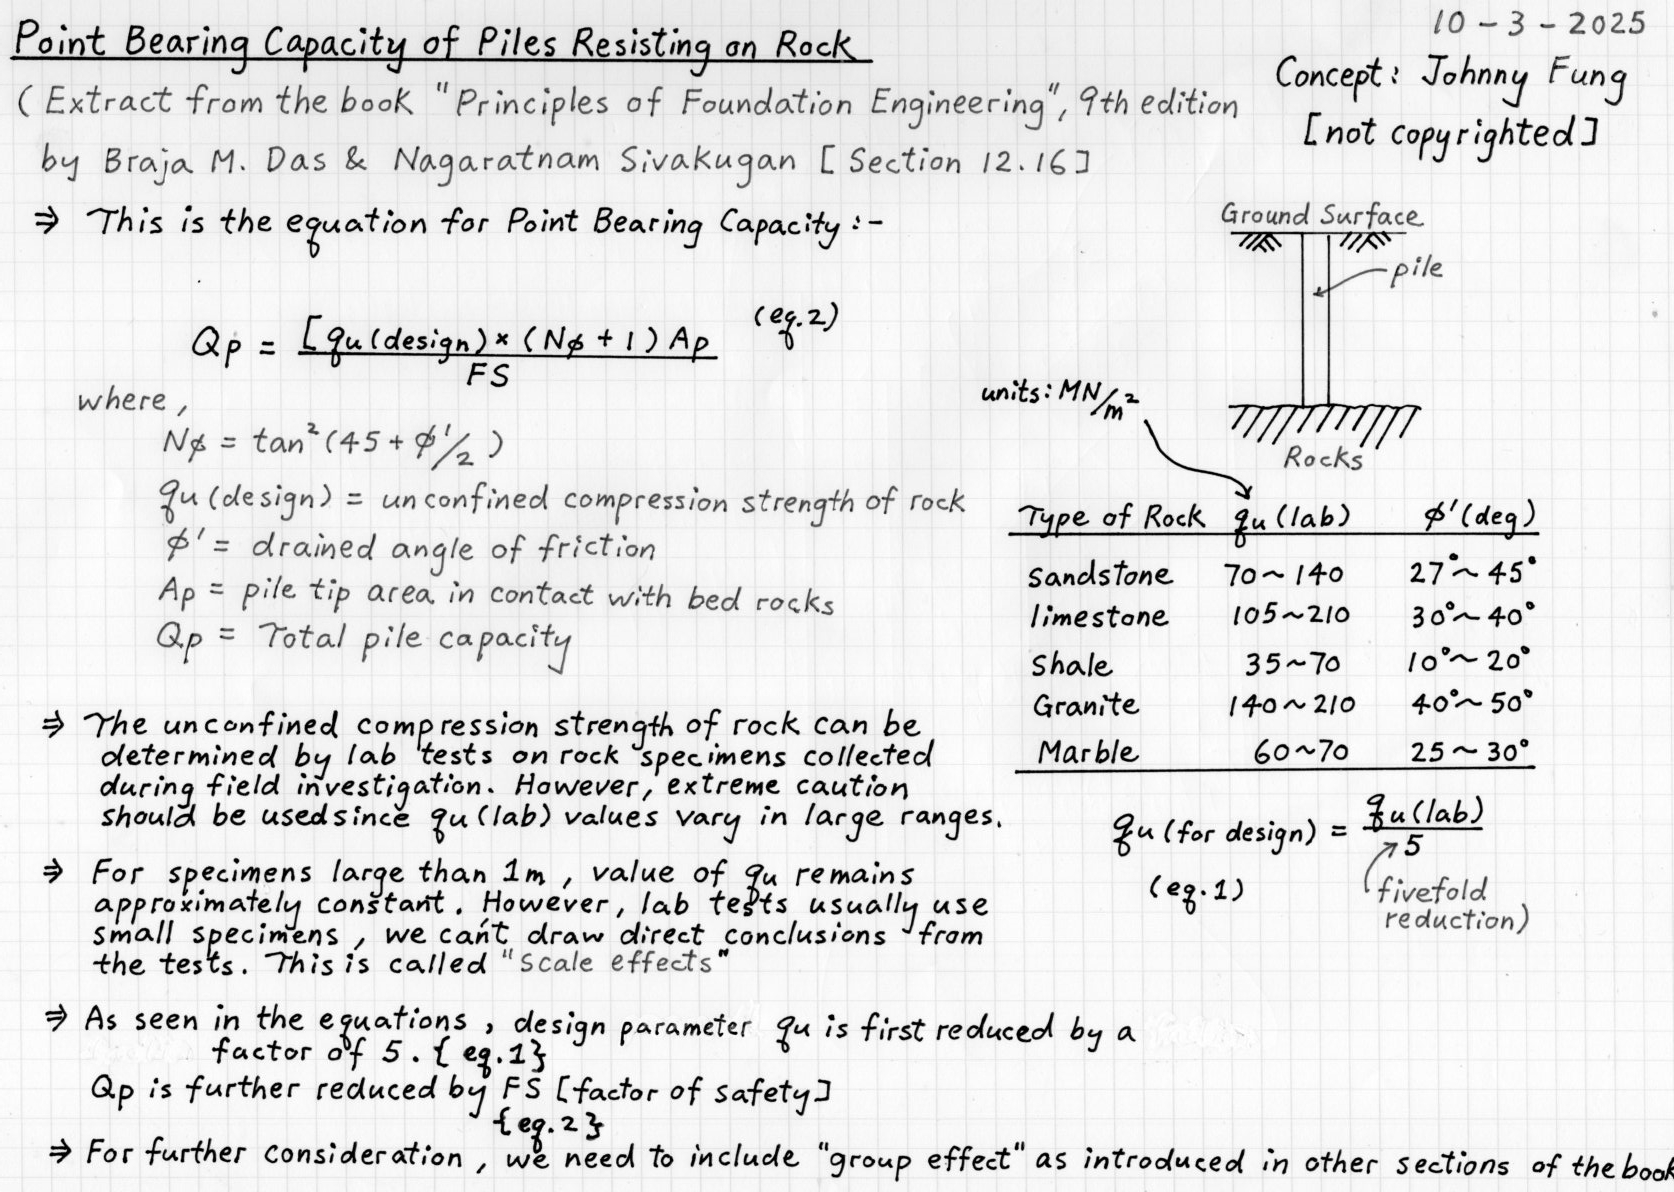 Point Bearing Capacity of Piles Resisting on Rock
10-3-2025
Concept: Johnny Fung
[not copyrighted]
(Extract from the book "Principles of Foundation Engineering", 9th edition
by Braja M. Das & Nagaratnam Sivakugan [Section 12.16]
⇒ This is the equation for Point Bearing Capacity :-
Qp = [qu(design) × (Nφ + 1) Ap
FS
(eq.2)
where,
Nφ = tan²(45 + φ'/2)
qu(design) = unconfined compression strength of rock
φ' = drained angle of friction
Ap = pile tip area in contact with bed rocks
Qp = Total pile capacity
Ground Surface
pile
Rocks
units: MN/m²
Type of Rock qu(lab) φ'(deg)
sandstone 70~140 27°~45°
limestone 105~210 30°~40°
Shale 35~70 10°~20°
Granite 140~210 40°~50°
Marble 60~70 25~30°
qu(for design) = qu(lab)
5
(eq.1)
fivefold
reduction)
⇒ The unconfined compression strength of rock can be
determined by lab tests on rock specimens collected
during field investigation. However, extreme caution
should be used since qu(lab) values vary in large ranges.
⇒ For specimens large than 1m, value of qu remains
approximately constant. However, lab tests usually use
small specimens, we can't draw direct conclusions from
the tests. This is called "Scale effects"
⇒ As seen in the equations, design parameter qu is first reduced by a
factor of 5. {eq.1}
Qp is further reduced by FS [factor of safety]
{eq.2}
⇒ For further consideration, we need to include "group effect" as introduced in other sections of the book